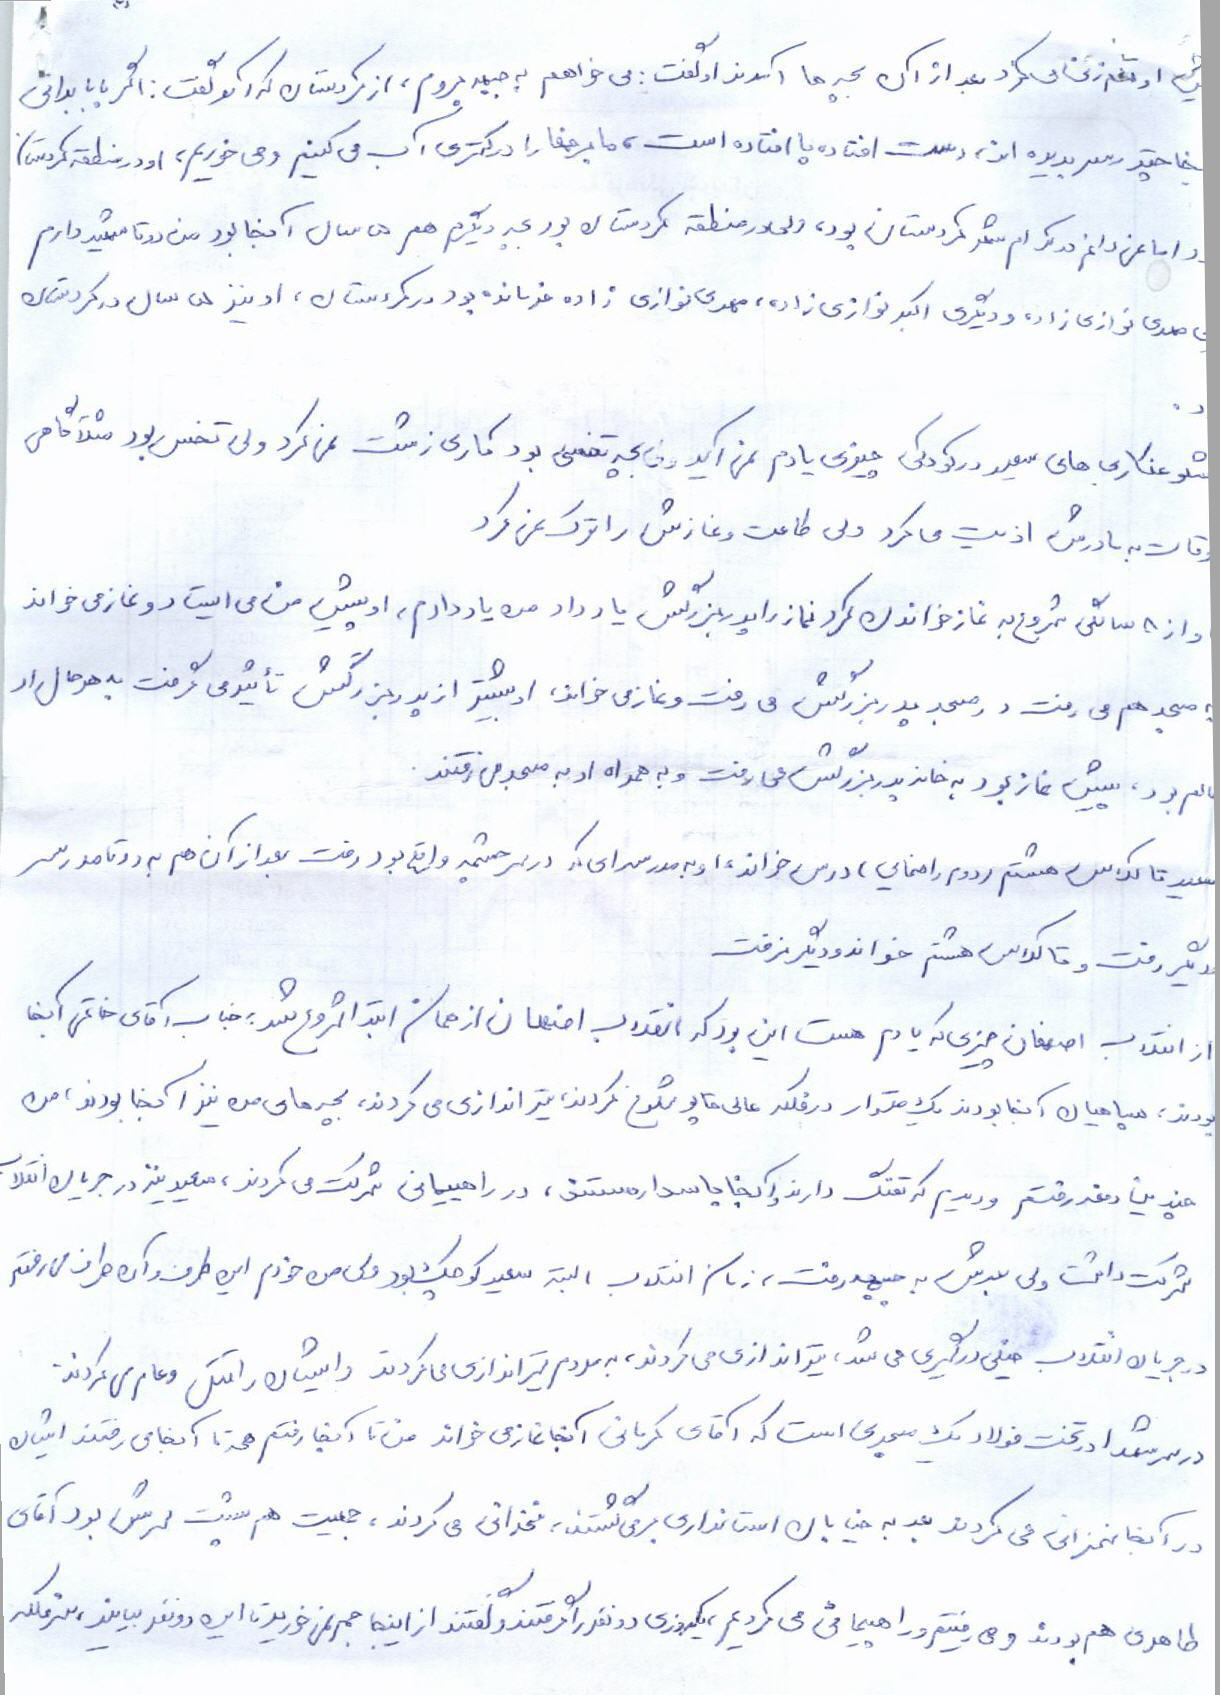 پیش او تلفنی می‌کرد بعد از آن بچه‌ها آمدند او گفت: می‌خواهم به جبهه بروم، از کردستان که آمد گفت: اگر بابا بدانی
چقدر سر بریده‌اند، دست افتاده پا افتاده است، ما برف‌ها را در کتری آب می‌کنیم و می‌خوریم، او در منطقه کردستان
اما نمی‌دانم در کدام شهر کردستان بود، ولی در منطقه کردستان بود بچه دیگرم هم ۵ سال آنجا بود من دو تا شهید دارم
مهدی نوازی زاده و دیگری اکبر نوازی زاده، مهدی نوازی زاده فرمانده بود در کردستان، او نیز ۵ سال در کردستان
د.
شلوغکاری‌های سعید در کودکی چیزی یادم نمی‌آید ولی بچه تخسی بود کاری زشت نمی‌کرد ولی تخس بود مثلاً گاهی
اوقات به مادرش اذیت می‌کرد ولی طاعت و نمازش را ترک نمی‌کرد
او از ۸ سالگی شروع به نماز خواندن کرد نماز را پدربزرگش یاد داد من یاد دارم، او پیش من می‌ایستاد و نماز می‌خواند
به مسجد هم می‌رفت در مسجد پدربزرگش می‌رفت و نماز می‌خواند، او بیشتر از پدربزرگش تأثیر می‌گرفت به هر حال او
عالم بود، پیش نماز بود به خانه پدربزرگش می‌رفت و به همراه او به مسجد می‌رفتند.
سعید تا کلاس هشتم (دوم راهنمایی) درس خواند، او به مدرسه‌ای که در سرچشمه واقع بود رفت بعد از آن هم به دو تا مدرسه
دیگر رفت و تا کلاس هشتم خواند و دیگر نرفت
از انقلاب اصفهان چیزی که یادم هست این بود که انقلاب اصفهان از همان ابتدا شروع شد، جناب آقای خاتمی آنجا
بودند، سپاهیان آنجا بودند یک مقدار در فلکه عالی قاپو شلوغ کردند، تیراندازی می‌کردند، بچه‌های من نیز آنجا بودند، من
چندین دفعه رفتم و دیدم که تفنگ دارند و آنجا پاسدار هستند، در راهپیمائی شرکت می‌کردند، سعید نیز در جریان انقلاب
شرکت داشت ولی بعدش به جبهه رفت، زمان انقلاب البته سعید کوچک بود ولی من خودم این طرف و آن طرف می‌رفتم
در جریان انقلاب خیلی درگیری می‌شد، تیراندازی می‌کردند، به مردم تیراندازی می‌کردند و ایشان را قتل و عام می‌کردند.
در سر شهدا در تخت فولاد یک مسجدی است که آقای کرمانی آنجا نماز می‌خواند من تا آنجا رفتم همه تا آنجا می‌رفتند ایشان
در آنجا سخنرانی می‌کردند بعد به خیابان استانداری برمی‌گشتند، سخنرانی می‌کردند، جمعیت هم پشت سرش بود آقای
طاهری هم بودند و می‌رفتیم و راهپیمائی می‌کردیم، یکروزی دو نفر را گرفتند و گفتند از اینجا جم نمی‌خورید تا این دو نفر بیایند، سر فلکه